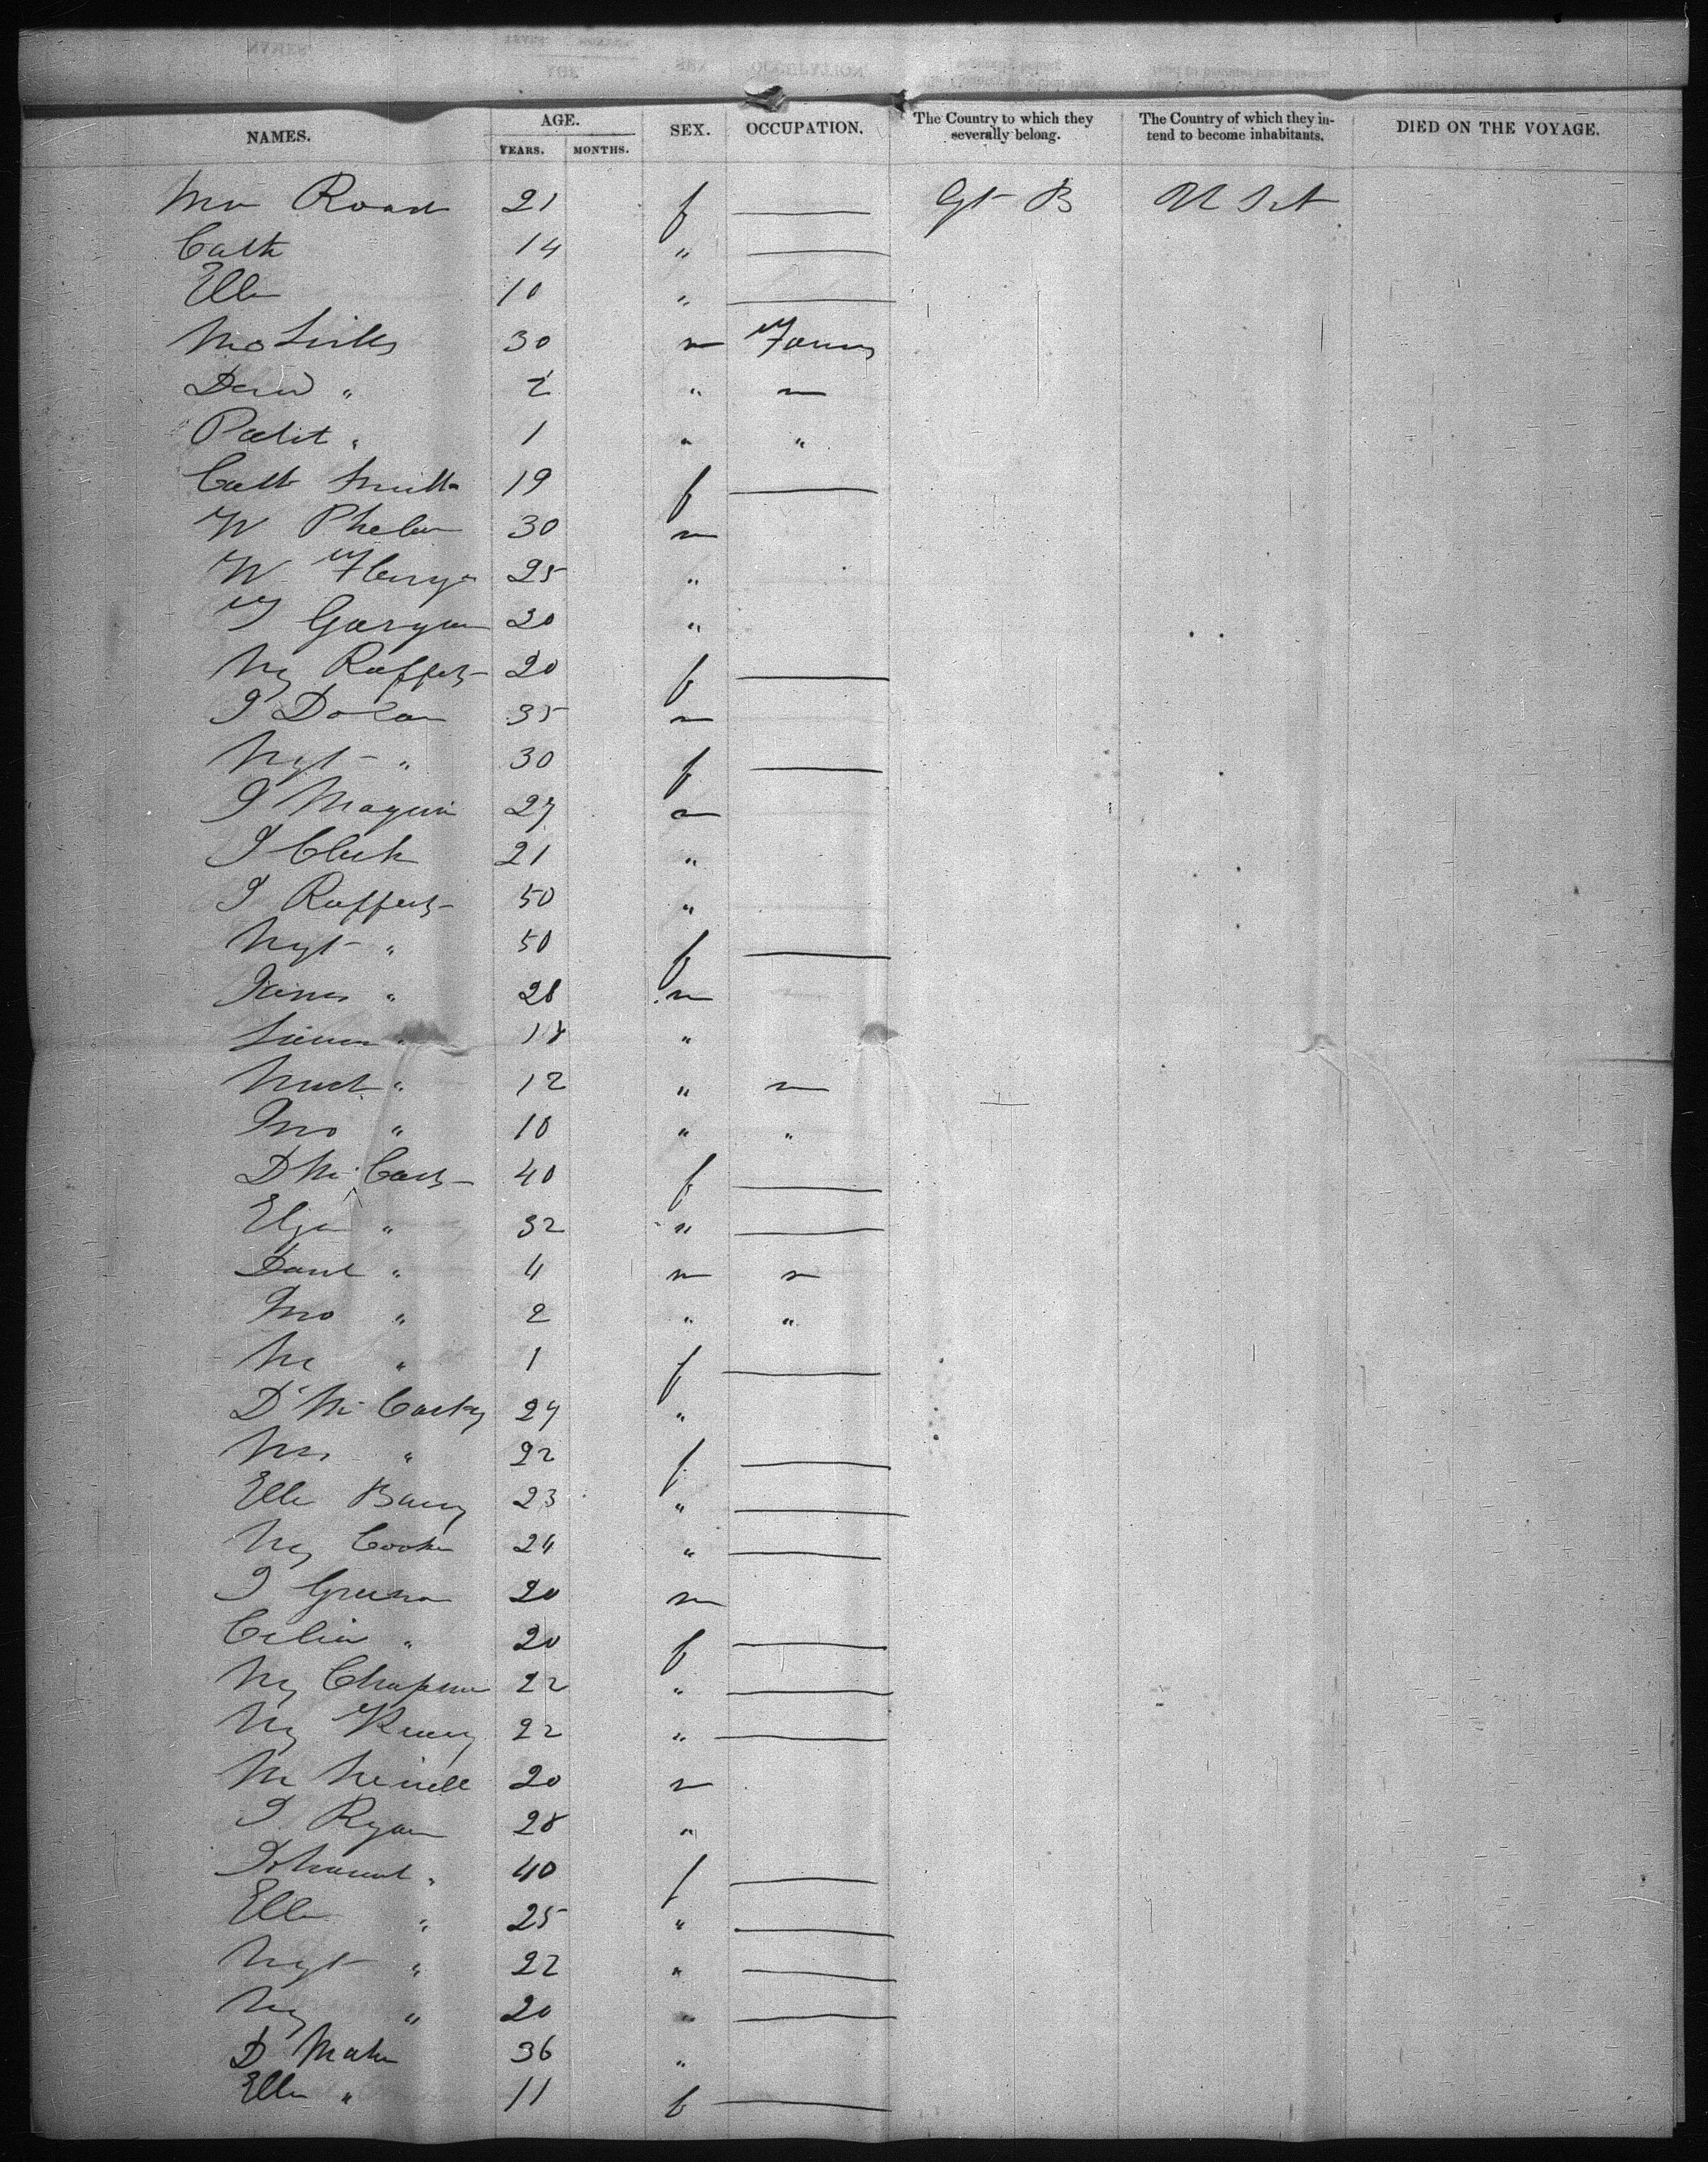 NAMES. AGE. SEX. OCCUPATION. The Country to which they severally belong. The Country of which they intend to become inhabitants. DIED ON THE VOYAGE.
YEARS. MONTHS.
21 f Gt B U S A
Cath 14 "
Ellen 10 "
30 m
" 2 " m
" 1 " "
Cath Smith 19 f
W Phelan 30 m
W 25 "
20 "
My Rafferty 20 f
J Dolan 35 m
Mgt " 30 f
J Maguire 27 m
J Clark 21 "
J Rafferty 50 "
Mgt " 50 f
James " 28 m
" 18 "
Mich " 12 " m
Jno " 10 " "
D McCarty 40 f
Eliza " 32 "
Danl " 4 m m
Jno " 2 " "
M " 1 f
D McCarthy 27 "
Mrs " 22 f
Ellen Barry 23 "
My Cooke 24 "
J 20 m
Celia " 20 f
My Chapman 22 "
My 22 "
M 20 m
J Ryan 28 "
Johannah " 40 f
Ellen " 25 "
Mgt " 22 "
My " 20 "
D Maher 36 "
Ellen " 11 f